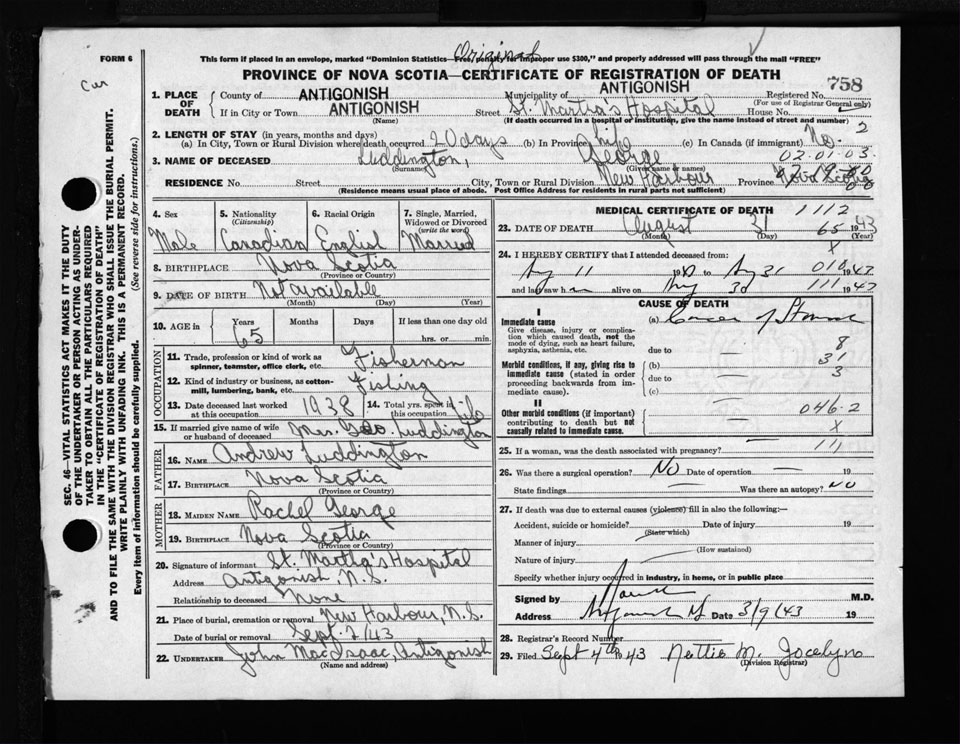 Original
FORM 6
This form if placed in an envelope, marked "Dominion Statistics—Free, penalty for improper use $300," and properly addressed will pass through the mail "FREE"
PROVINCE OF NOVA SCOTIA—CERTIFICATE OF REGISTRATION OF DEATH
758
1. PLACE OF DEATH
County of ANTIGONISH Municipality of ANTIGONISH Registered No.
(For use of Registrar General only)
If in City or Town ANTIGONISH Street St. Martha's Hospital House No.
(Name) (If death occurred in a hospital or institution, give the name instead of street and number)
2. LENGTH OF STAY (in years, months and days)
(a) In City, Town or Rural Division where death occurred 20 days (b) In Province life (c) In Canada (if immigrant) No. 2
3. NAME OF DECEASED Luddington, George 02.01.03.
(Surname) (Given name or names)
RESIDENCE No. Street City, Town or Rural Division New Harbour Province Nova Scotia
(Residence means usual place of abode. Post Office Address for residents in rural parts not sufficient)
SEC. 46—VITAL STATISTICS ACT MAKES IT THE DUTY
OF THE UNDERTAKER OR PERSON ACTING AS UNDER-
TAKER TO OBTAIN ALL THE PARTICULARS REQUIRED
IN THE "CERTIFICATE OF REGISTRATION OF DEATH"
AND TO FILE THE SAME WITH THE DIVISION REGISTRAR WHO SHALL ISSUE THE BURIAL PERMIT.
WRITE PLAINLY WITH UNFADING INK. THIS IS A PERMANENT RECORD.
Every item of information should be carefully supplied. (See reverse side for instructions.)
4. Sex
Male
5. Nationality
(Citizenship)
Canadian
6. Racial Origin
English
7. Single, Married, Widowed or Divorced
(write the word)
Married
8. BIRTHPLACE Nova Scotia
(Province or Country)
9. DATE OF BIRTH Not available
(Month) (Day) (Year)
10. AGE in Years Months Days If less than one day old
65 hrs. or min.
OCCUPATION
11. Trade, profession or kind of work as
spinner, teamster, office clerk, etc. Fisherman
12. Kind of industry or business, as cotton-
mill, lumbering, bank, etc. Fishing
13. Date deceased last worked
at this occupation 1938
14. Total yrs. spent in
this occupation life
15. If married give name of wife
or husband of deceased Mrs. Geo. Luddington
FATHER
16. NAME Andrew Luddington
17. BIRTHPLACE Nova Scotia
(Province or Country)
MOTHER
18. MAIDEN NAME Rachel George
19. BIRTHPLACE Nova Scotia
(Province or Country)
20. Signature of informant St. Martha's Hospital
Address Antigonish, N.S.
Relationship to deceased None
21. Place of burial, cremation or removal New Harbour, N.S.
Date of burial or removal Sept. 2/43
22. UNDERTAKER John MacIsaac, Antigonish
(Name and address)
MEDICAL CERTIFICATE OF DEATH 1112
23. DATE OF DEATH August 31 65 1943
(Month) (Day) (Year)
X
24. I HEREBY CERTIFY that I attended deceased from:
Aug 11 to Aug 31
and last saw h alive on Aug 111
CAUSE OF DEATH
I
Immediate cause (a) Cancer of Stomach
Give disease, injury or complica-
tion which caused death, not the
mode of dying, such as heart failure,
asphyxia, asthenia, etc.
due to 8
(b) 31
Morbid conditions, if any, giving rise to
immediate cause (stated in order
proceeding backwards from im-
mediate cause).
due to 3
(c)
II
Other morbid conditions (if important)
contributing to death but not
causally related to immediate cause.
046.2
X
25. If a woman, was the death associated with pregnancy?
26. Was there a surgical operation? No Date of operation 19
State findings Was there an autopsy? No
27. If death was due to external causes (violence) fill in also the following:—
Accident, suicide or homicide? Date of injury 19
(State which)
Manner of injury
(How sustained)
Nature of injury
Specify whether injury occurred in industry, in home, or in public place
Signed by M.D.
Address Date 3/9/43 19
28. Registrar's Record Number
29. Filed Sept 4th 1943 Nettie M. Jocelyn
(Division Registrar)